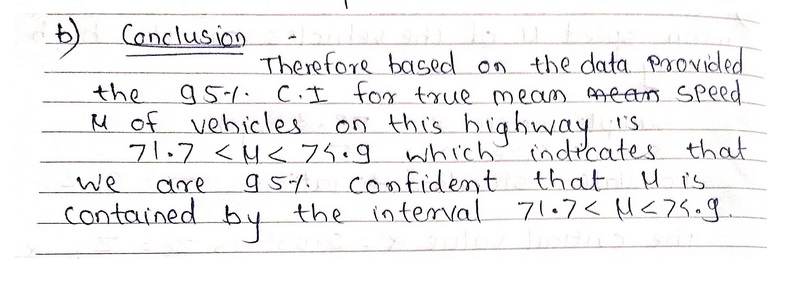 b) Conclusion -
Therefore based on the data provided
the 95%. C.I for true mean mean speed
μ of vehicles on this highway is
71.7 < μ < 75.9 which indicates that
we are 95%. confident that μ is
contained by the interval 71.7 < μ < 75.9.